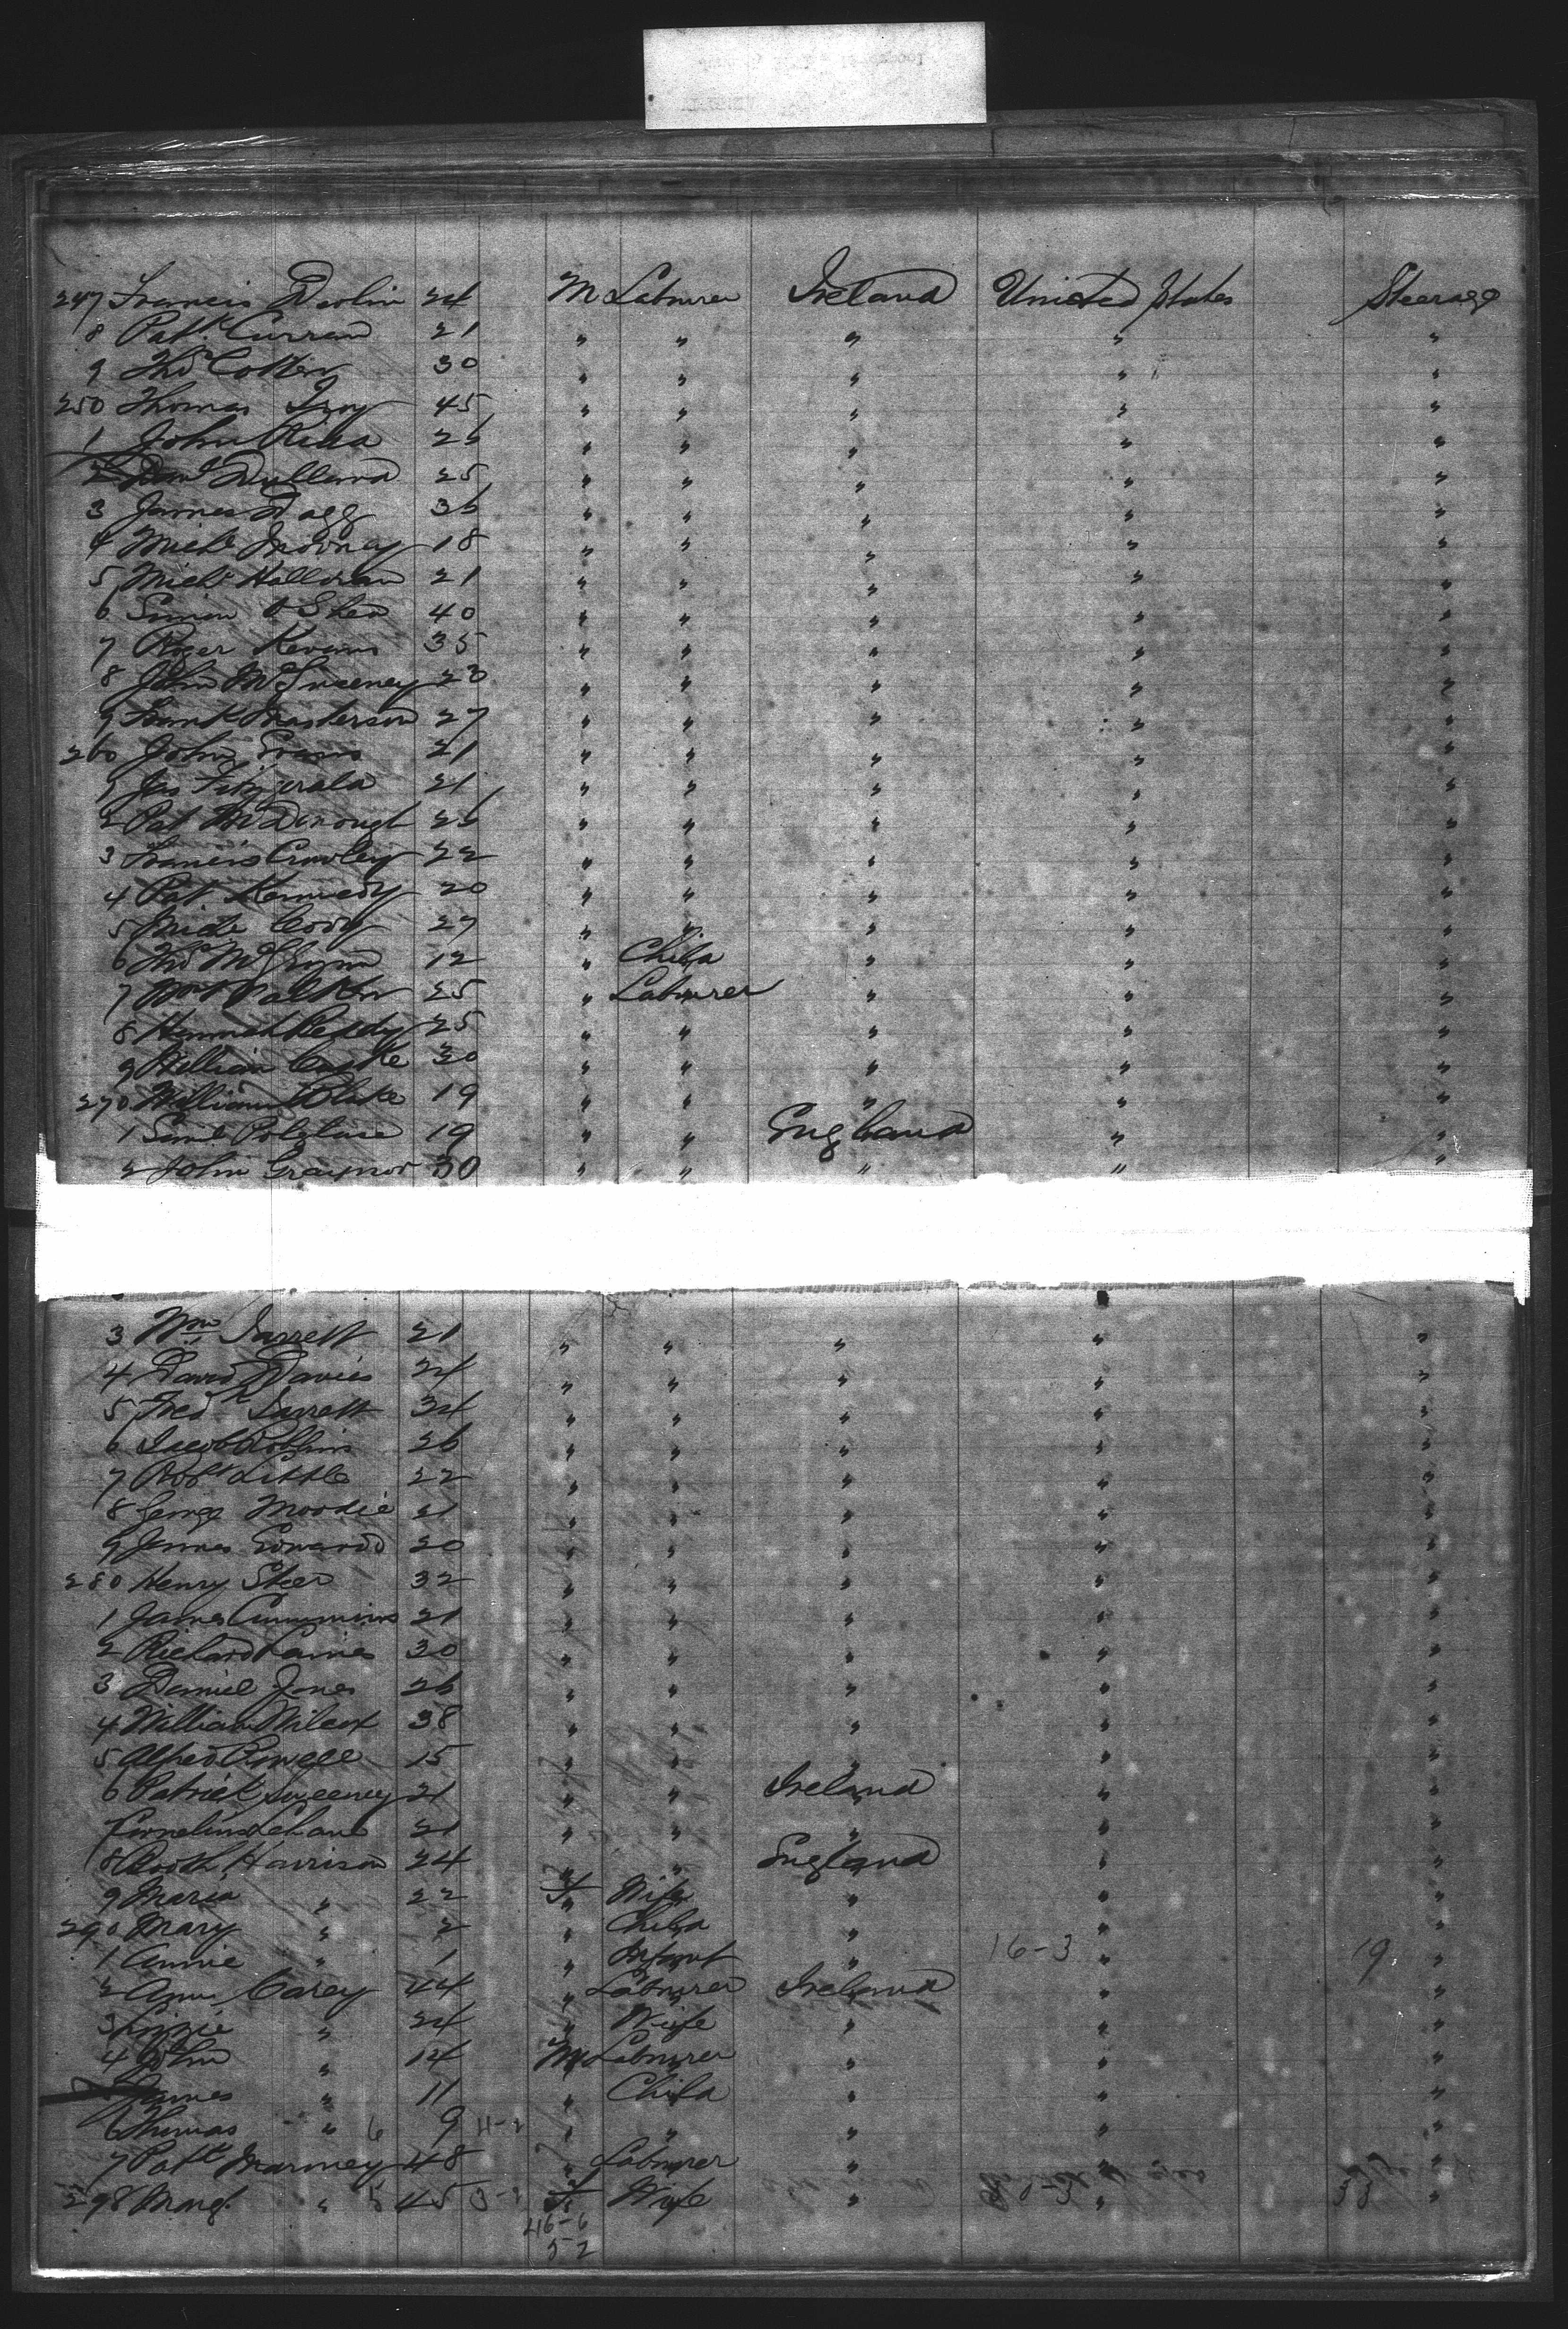 247 Francis Devlin 24 M Labourer Ireland United States Steerage
8 Patk. Curran 21 " " " " "
9 Thos Cotter 30 " " " " "
250 Thomas Troy 45 " " " " "
1 John 26 " " " " "
2 25 " " " " "
3 James 36 " " " " "
4 Michl 18 " " " " "
5 Michl Halloran 21 " " " " "
6 Simon O'Shea 40 " " " " "
7 Roger Kevans 35 " " " " "
8 John McSweeney 23 " " " " "
9 Frank Masterson 27 " " " " "
260 John Evans 21 " " " " "
1 Jas Fitzgerald 21 " " " " "
2 Pat McDonough 26 " " " " "
3 Francis Crowley 22 " " " " "
4 Pat. Kennedy 20 " " " " "
5 Michl Cody 27 " " " " "
6 Thos McGlynn 12 " Child " " "
7 Wm Walker 25 " Labourer " " "
8 Hannah Reddy 25 " " " " "
9 William 30 " " " " "
270 William Blake 19 " " " " "
1 Saml 19 " " England " "
2 John Graynor 30 " " " " "
3 Wm Jarrett 21 " " " " "
4 David Davies 24 " " " " "
5 Fredk Jarrett 34 " " " " "
6 Jacob Robbins 26 " " " " "
7 Robt Little 22 " " " " "
8 George Moodie 21 " " " " "
9 James Edwards 20 " " " " "
280 Henry Steer 32 " " " " "
1 James Cummins 21 " " " " "
2 Richard 30 " " " " "
3 Daniel Jones 26 " " " " "
4 William Wilcox 38 " " " " "
5 Alfred Powell 15 " " " " "
6 Patrick Sweeney 21 " " Ireland " "
7 Cornelius Lehane 21 " " " " "
8 Booth Harrison 24 " " England " "
9 Maria " 22 F Wife " " "
290 Mary " 2 " Child " " "
1 Annie " 1 " Infant " 16-3 " 19 "
2 Ann Carey 44 " Labourer Ireland " "
3 Lizzie " 24 " Wife " " "
4 John " 14 M Labourer " " "
James " 11 " Child " " "
6 Thomas " 6 9 " " " " "
7 Patk 48 " Labourer " " "
298 Margt. " 5 45 F Wife " " 33 "
46-6
5-2